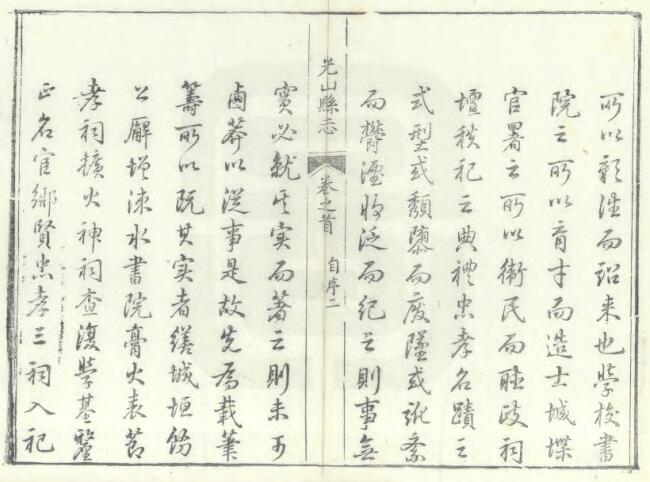 所以彰往而詔来也學校書
院之所以育才而造士城堞
官署之所以衛民而聽政祠
壇秩祀之典禮忠孝名蹟之
式型或頹隳而廢墜或紊
而欝湮將泛而紀之則事無
光山縣志 卷之首 自序二
實必就其實而著之則未可
鹵莽以從事是故先為載筆
籌所以既其實者繕城垣飭
公廨增涑水書院膏火表節
孝祠擴火神祠查復學基釐
正名宦鄉賢忠孝三祠入祀